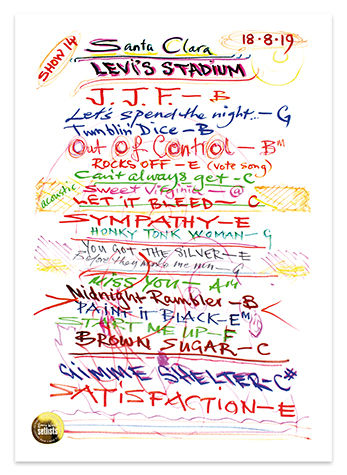 SHOW 14
Santa Clara
18·8·19
LEVI'S STADIUM
J.J.F. – B
Let's spend the night.. – G
Tumblin' Dice – B
Out Of Control – Bᴹ
ROCKS OFF – E (vote song)
Can't always get – C
acoustic
Sweet Virginia – @
LET IT BLEED – C
SYMPATHY – E
HONKY TONK WOMAN – G
YOU GOT THE SILVER – E
Before they make me run – G
MISS YOU – Aᴹ
Midnight Rambler – B
PAINT IT BLACK – Eᴹ
START ME UP – F
BROWN SUGAR – C
GIMME SHELTER – C#
SATISFACTION – E
setlists